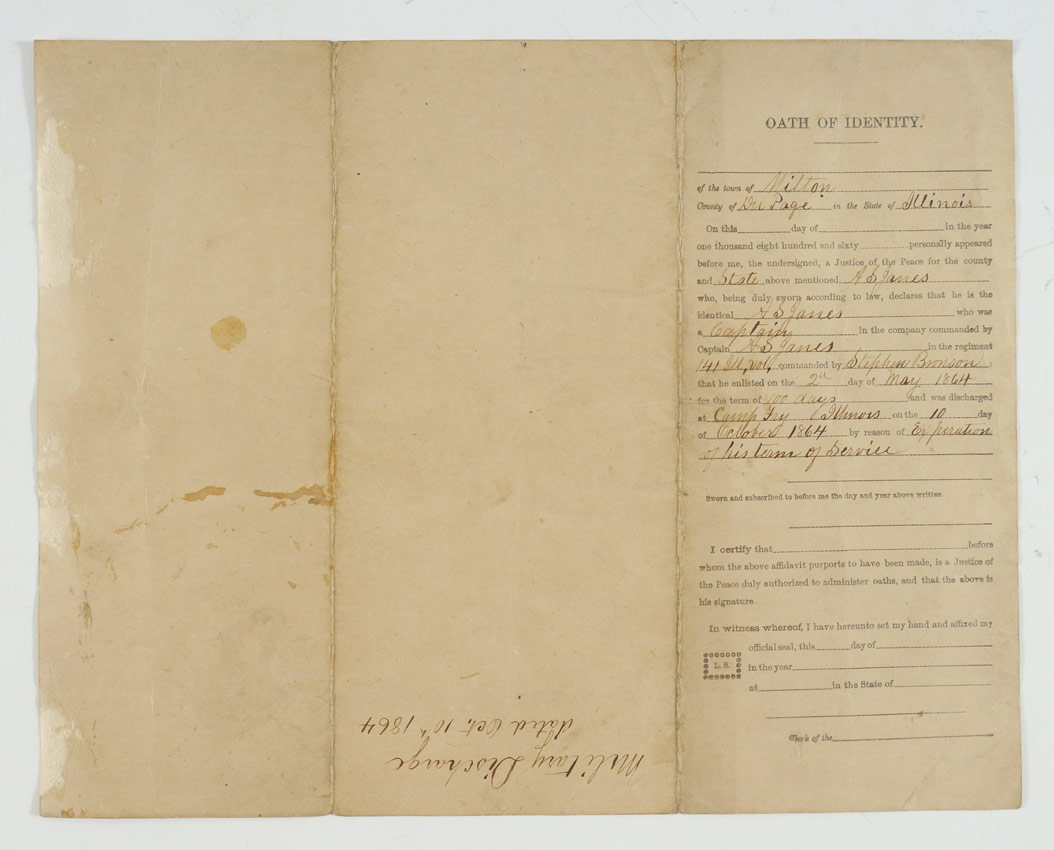 OATH OF IDENTITY.
of the town of Milton
County of Du Page in the State of Illinois
On this day of in the year
one thousand eight hundred and sixty personally appeared
before me, the undersigned, a Justice of the Peace for the county
and State above mentioned, A S Janes
who, being duly sworn according to law, declares that he is the
identical A S Janes who was
a Captain in the company commanded by
Captain A S Janes in the regiment
141 Ill, Vol, commanded by Stephen Bronson ;
that he enlisted on the 2d day of May 1864
for the term of 100 days and was discharged
at Camp Fry Illinois on the 10 day
of October 1864 by reason of Expiration
of his term of Service
Sworn and subscribed to before me the day and year above written
I certify that before
whom the above affidavit purports to have been made, is a Justice of
the Peace duly authorized to administer oaths, and that the above is
his signature
In witness whereof, I have hereunto set my hand and affixed my
official seal, this day of
L. S. in the year
at in the State of
Clerk of the
Military Discharge
dated Oct. 10th 1864